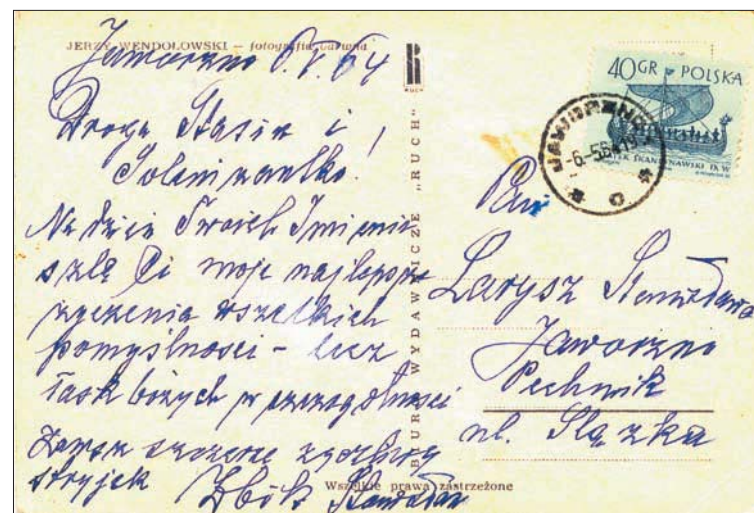 JERZY WENDOŁOWSKI – fotografia barwna
Jaworzno 6.V.64
Droga Stasiu i
Solenizantko!
Na dzień Twoich Imienin
szlę Ci moje najlepsze
życzenia wszelkich
pomyślności – lecz
łask bożych w szczególności
zawsze szczerze życzliwy
stryjek
BIURO WYDAWNICZE „RUCH"
RUCH
Wszelkie prawa zastrzeżone
40 GR POLSKA
JAWORZNO
-6.-5.64.19
Pani
Larysz Stanisława
Jaworzno
Pechnik
ul. Slązka